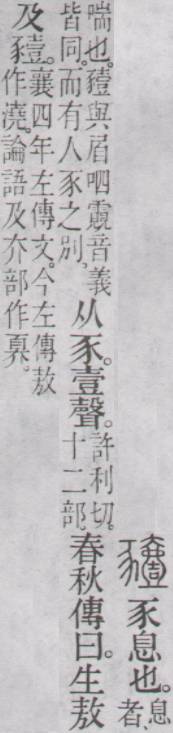 豷豕息也。息者、
喘也。豷與㞒呬䨳音義皆同。而有人豕之別、从豕。壹聲。許利切。十二部。春秋傳曰。生敖
及豷。襄四年左傳文。今左傳敖作澆。論語及夰部作奡。